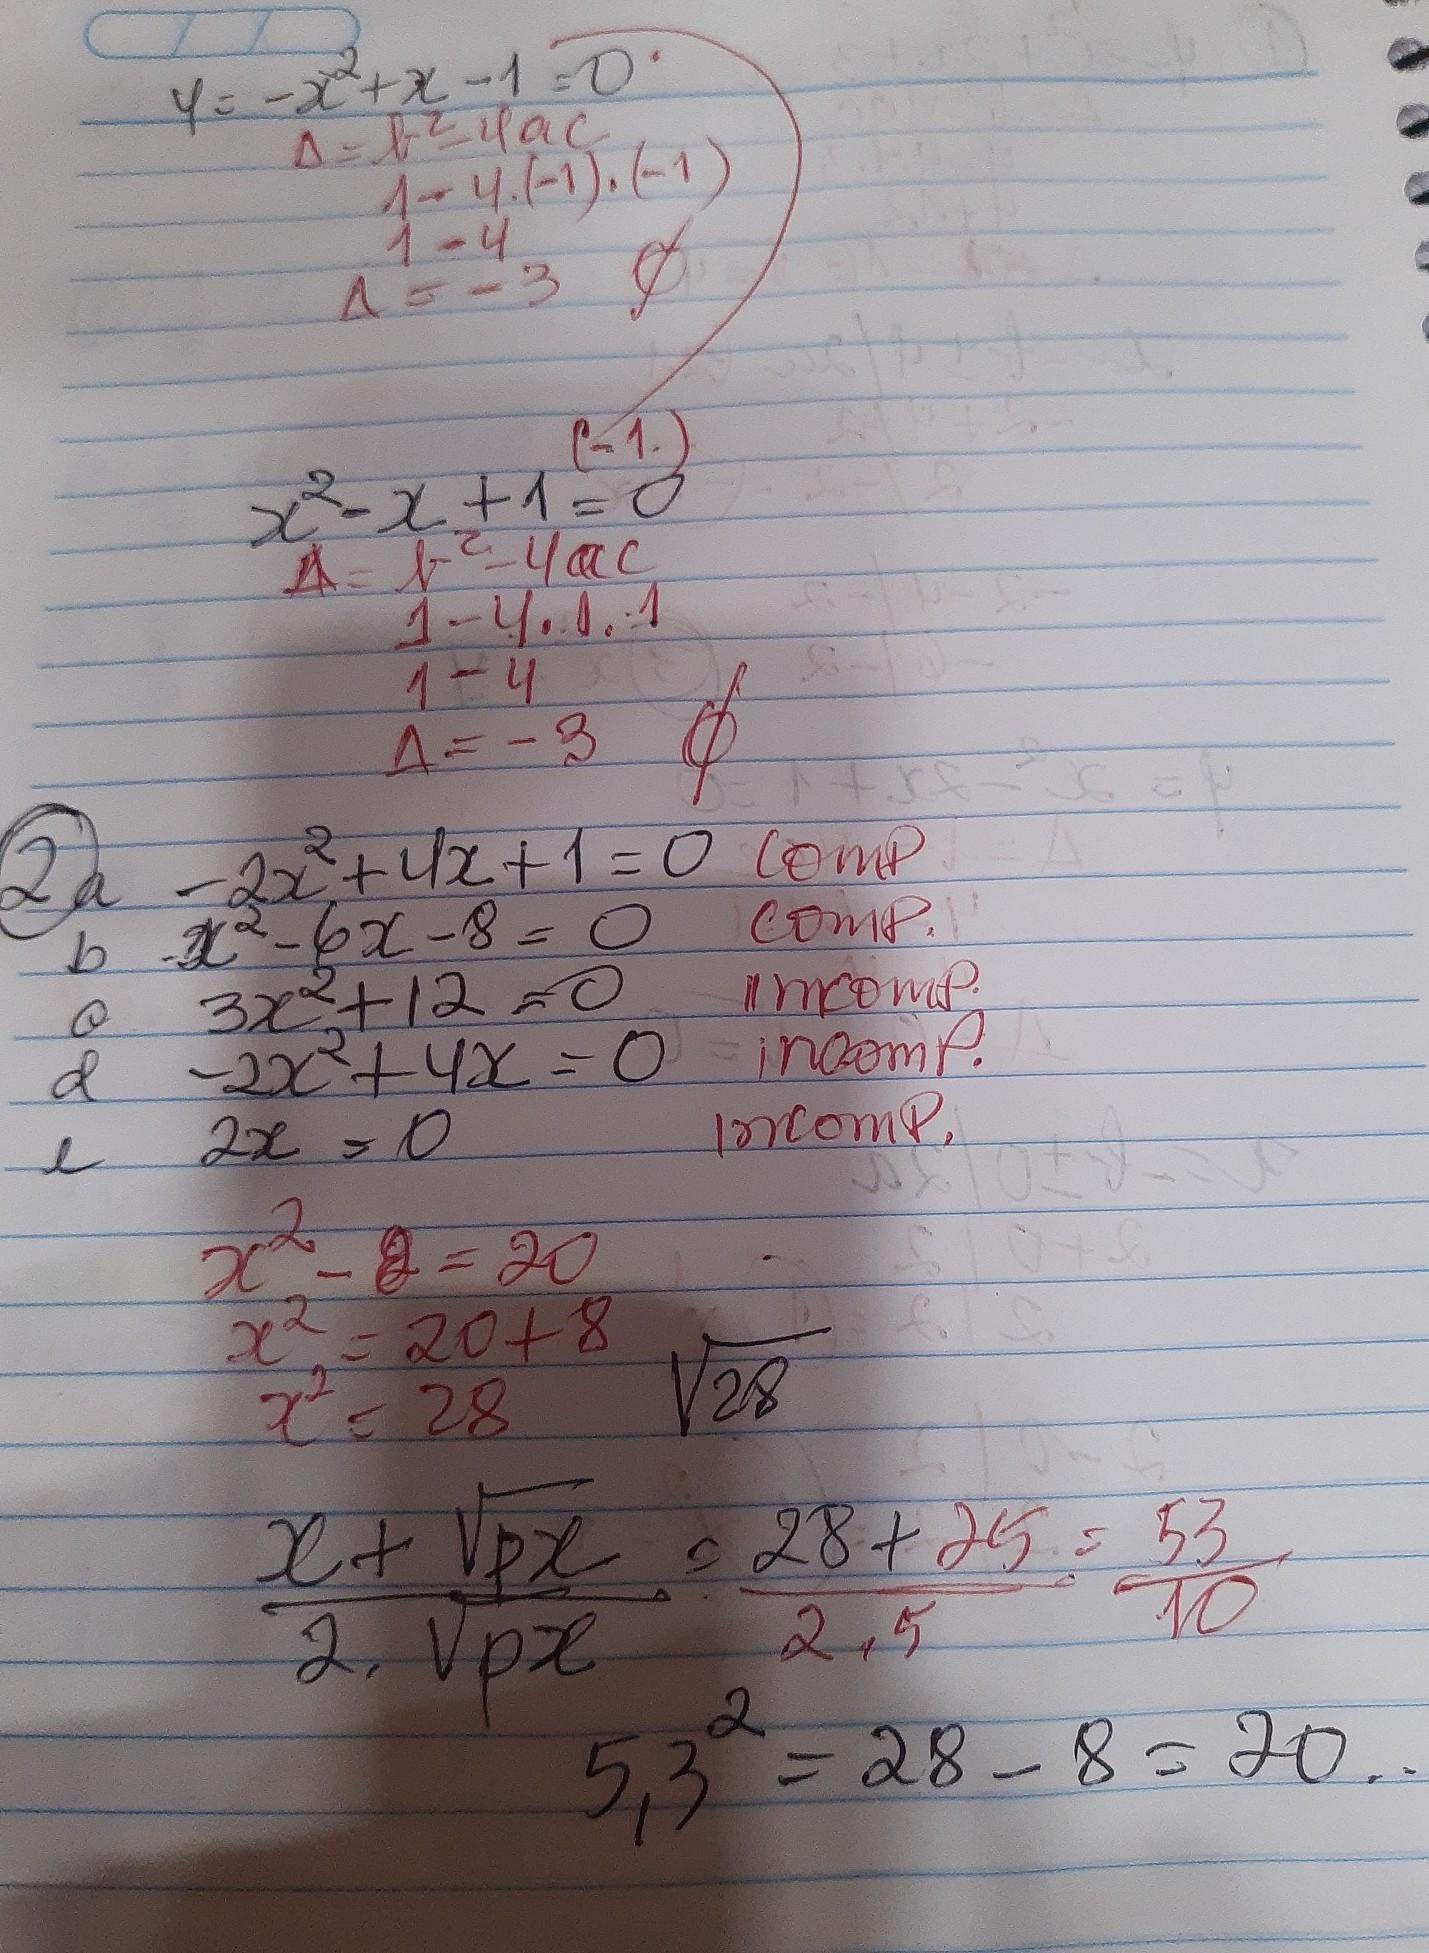 y = -x² + x - 1 = 0
Δ = b² - 4ac
1 - 4.(-1).(-1)
1 - 4
Δ = -3 ∅
(-1.)
x² - x + 1 = 0
Δ = b² - 4ac
1 - 4.1.1
1 - 4
Δ = -3 ∅
2 a -2x² + 4x + 1 = 0 comp
b x² - 6x - 8 = 0 comp.
c 3x² + 12 = 0 incomp.
d -2x² + 4x = 0 incomp.
e 2x = 0 incomp.
x² - 8 = 20
x² = 20 + 8
x² = 28 √28
x + √px / 2.√px = 28 + 25 / 2.5 = 53 / 10
5,3² = 28 - 8 = 20..